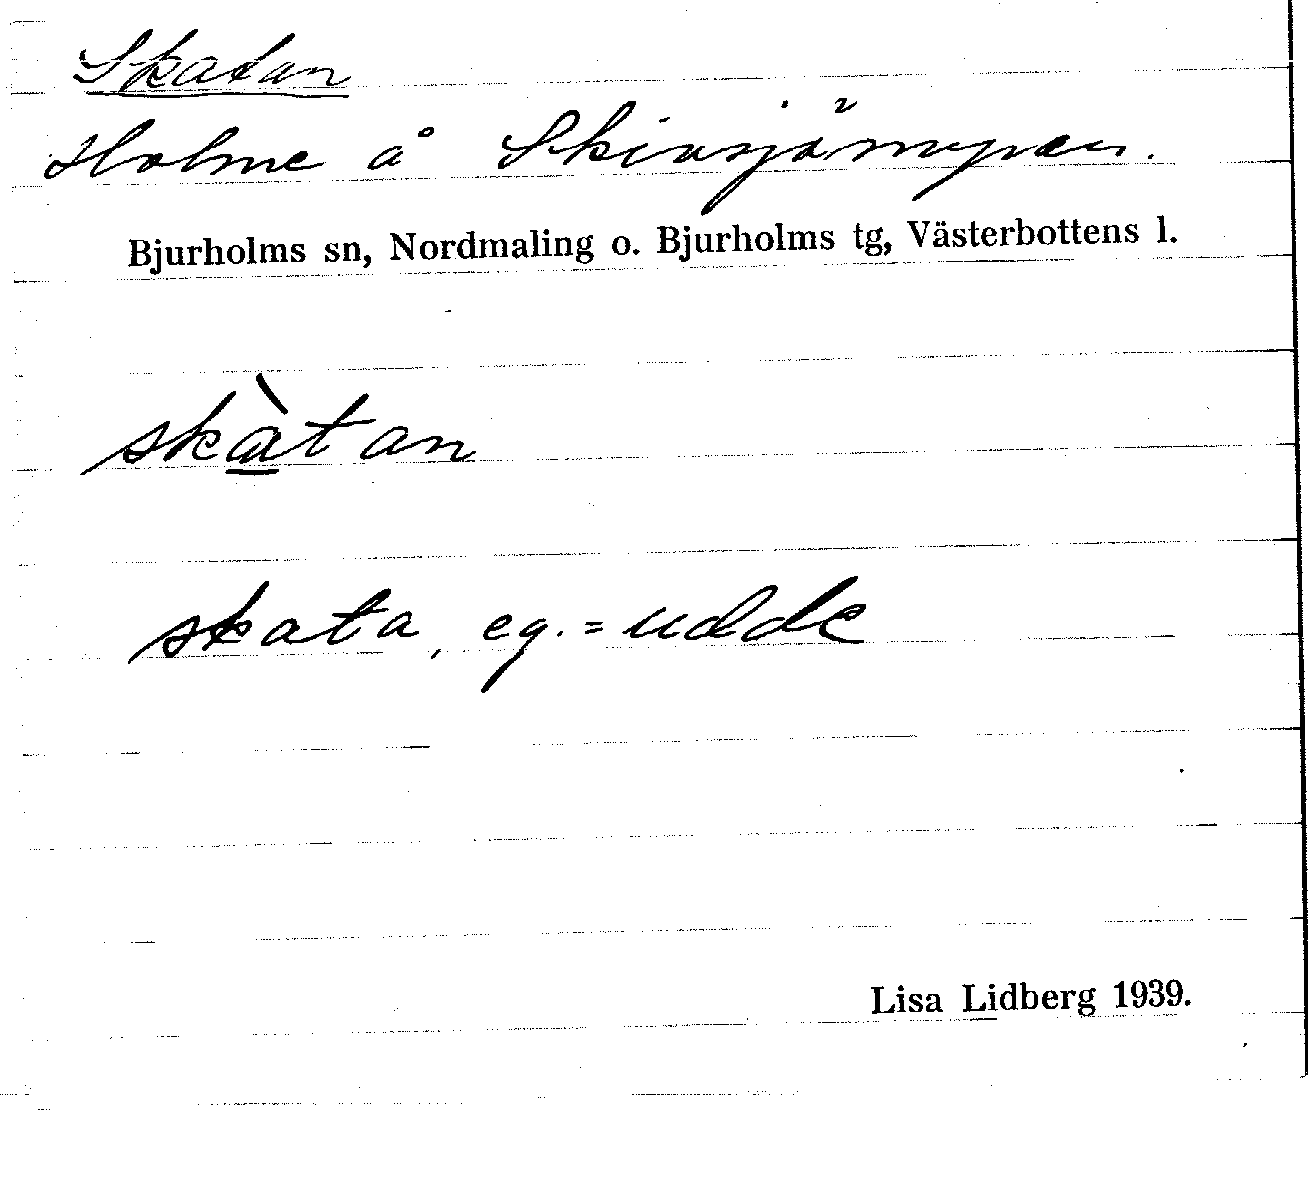 Skatan
Holme å Skivsjömyran.
Bjurholms sn, Nordmaling o. Bjurholms tg, Västerbottens l.
skà̱tan
skata, eg. = udde
Lisa Lidberg 1939.